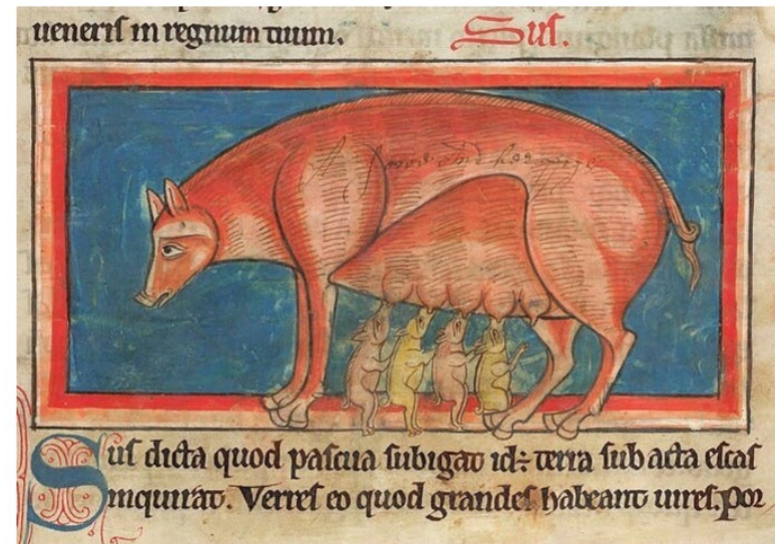 ueneris in regnum tuum. Sus.
A sowe and her pigge
Sus dicta quod pascua subigat id÷ terra subacta escas
inquirat. Verres eo quod grandes habeant uires. por